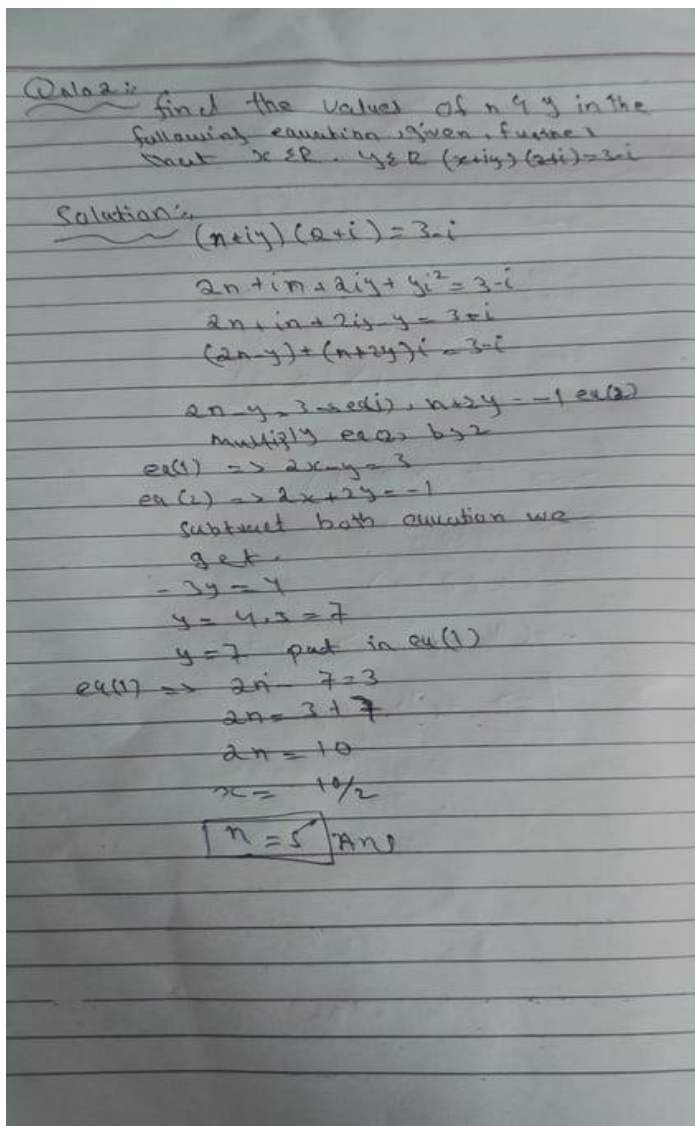 Q No 2:
find the values of n & y in the
following equation, given, further
that x ε R. y ε R (x+iy)(2+i)=3-i
Solution:
(n+iy)(2+i)=3-i
2n+in+2iy+yi²=3-i
2n+in+2iy-y=3-i
(2n-y)+(n+2y)i=3-i
2n-y=3 → eq(1), n+2y=-1 eq(2)
multiply eq(2) by 2
eq(1) => 2x-y=3
eq(2) => 2x+2y=-1
subtract both equation we
get.
-3y=4
y=4+3=7
y=7 put in eq(1)
eq(1) => 2n-7=3
2n=3+7
2n=10
x=10/2
n=5 Ans